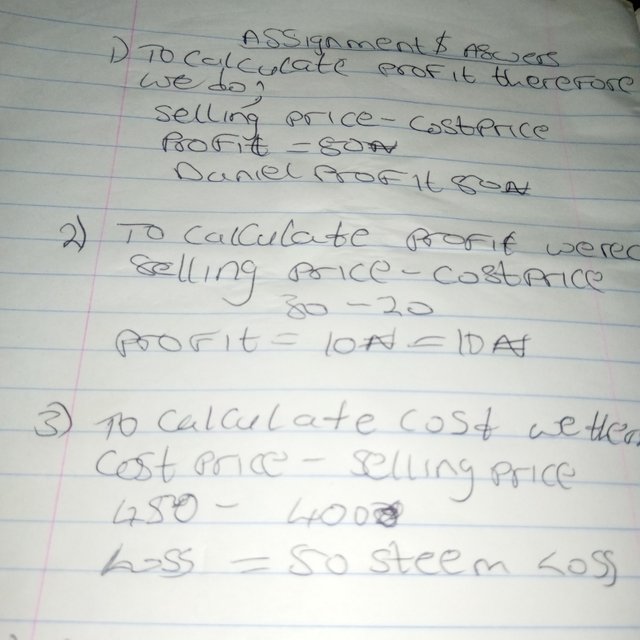 Assignment $ Aswers
1) To calculate profit therefore
we do,
selling price - Cost Price
Profit = 50₦
Daniel Profit 50₦
2) To calculate profit
selling price - Cost price
30 - 20
Profit = 10₦ = 10₦
3) To calculate cost
Cost price - selling price
450 - 400
Loss = 50 steem Loss